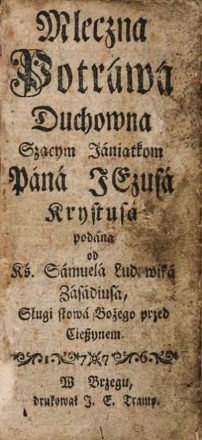 Mleczna
Potráwa
Duchowna
Szącym Jániątkom
Páná JEzusá
Krystusá
podána
od
Kś. Sámuelá Ludwiká
Zásádiusá,
Sługi słowá Bożego przed
Cieszynem.
1776.
W Brzegu,
drukował J. E. Tramp.